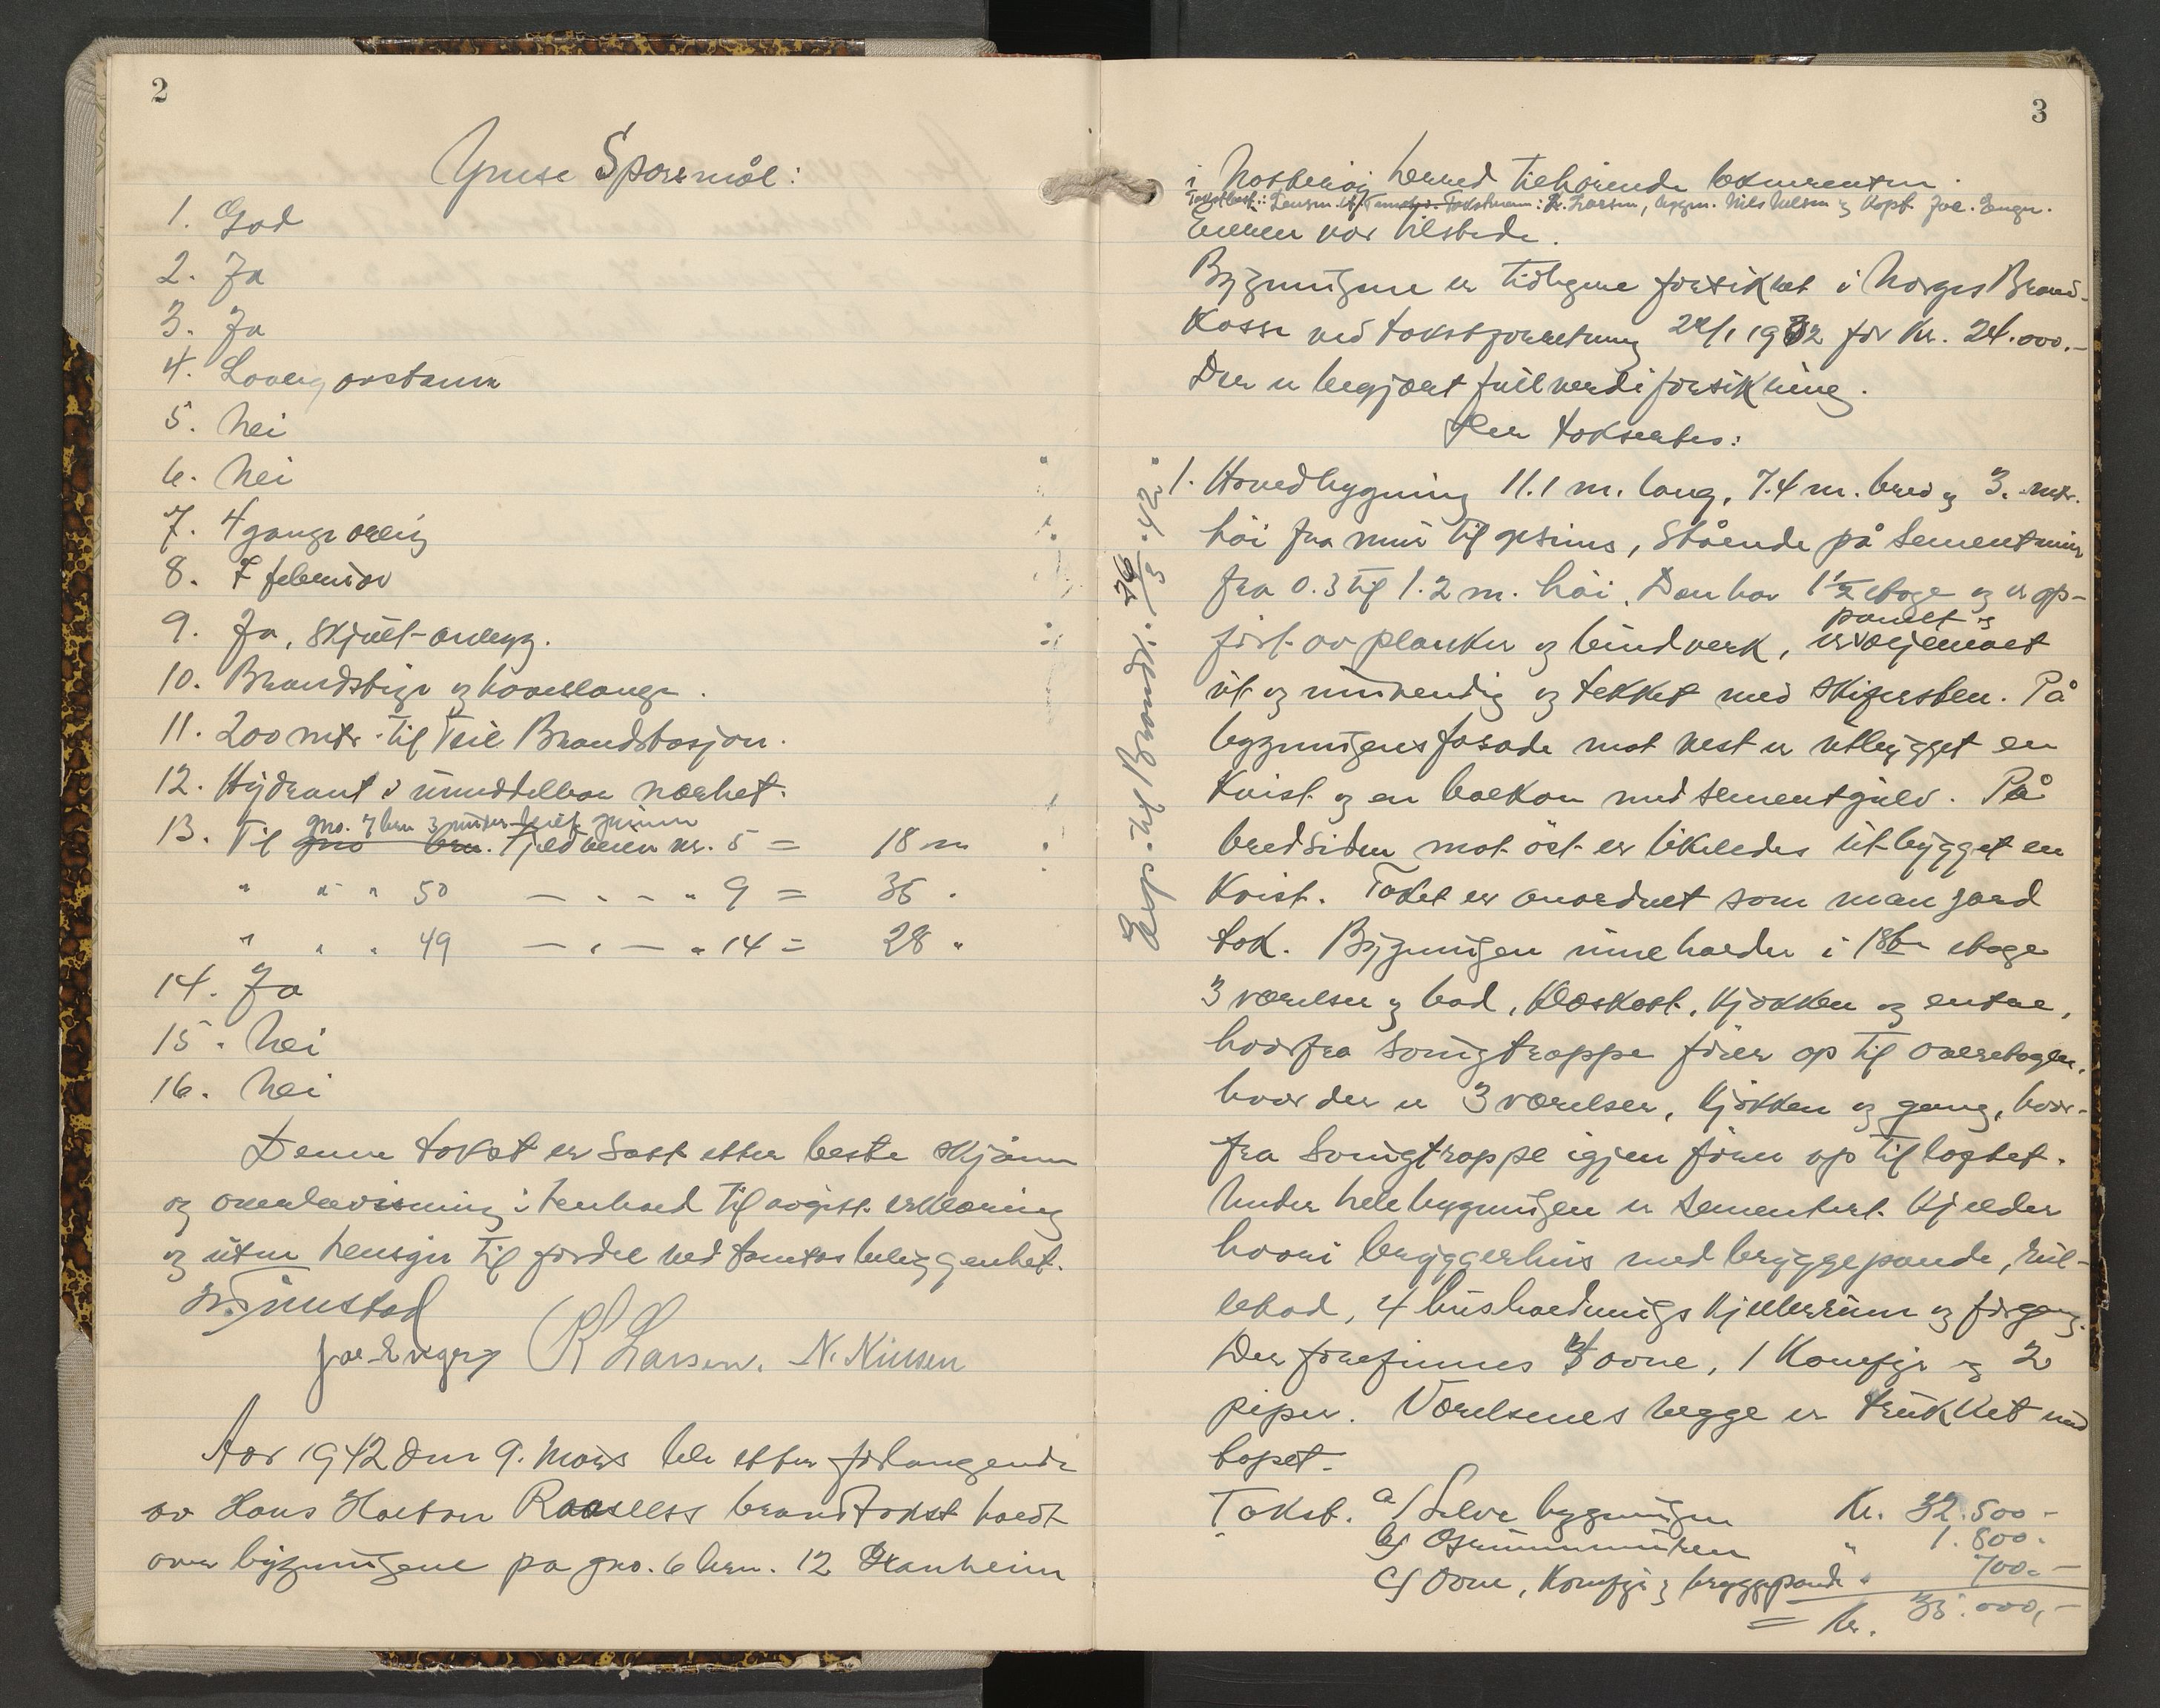 2
Ymse Spørsmål:
1. God
2. Ja
3. Ja
4. Lovlig avstann
5. Nei
6. Nei
7. 4 gange årlig
8. 7 februar
9. Ja, skjult anlegg.
10. Brandstige og haveslange.
11. 200 mtr. til Teie Brandstasjon.
12. Hydrant i umiddelbar nærhet.
gno. 7 brn 3 under under
13. Til gno brn. Tjeldveien nr. 5 = 18 m
" " " 50 — " — " 9 = 35 "
" " " 49 — " — " 14 = 28 "
14. Ja
15. Nei
16. Nei
Denne takst er satt etter beste skjønn
og overbevisning i henhold til avgitt erklæring
og uten hensyn til fordel ved tomtas beliggenhet.
Joe Enger R Larsen. N. Nilsen
Aar 1942 den 9. Mars ble etter forlangende
av Hans brandtakst holdt
over bygningene på gno. 6 brn. 12 Granheim
3
i Nøtterøy herred tilhørende
Takstmenn: R. Larsen, bygm. Nils Nilsen og Kapt. Joe. Enger.
var tilstede.
Bygningene er tidligere forsikret i Norges Brand-
kasse ved takstforretning 28/1 1932 for Kr. 24.000.-
Der er begjært fullverdiforsikring.
Der takseertes:
Exp. til Brandk. 26/3.42.
1. Hovedbygning 11.1 m. lang, 7.4 m. bred og 3. mtr.
høi fra mur til gesims, stående på sementmur
fra 0.3 til 1.2 m. høi. Den har 1½ etage og er op-
panelt og
ført av planker og bindverk, er oljemalt
ut og innvendig og tekket med skifersten. På
bygningens fasade mot vest er utbygget en
kvist og en balkon med sementgulv. På
bredsiden mot øst er likeledes utbygget en
kvist. Taket er anordnet som mansard
tak. Bygningen inneholder i 1ste etage
3 værelser og bad, klosett, kjøkken og entre,
hvorfra svingtrappe fører op til overetagen,
hvor der er 3 værelser, kjøkken og gang, hvor-
fra svingtrappe igjen fører op til loftet.
Under hele bygningen er sementert kjelder
hvori bryggerhus med bryggepande, rul-
lebod, 4 husholdnings kjellerrum og forgang.
Der forefinnes 3 ovne, 1 komfyr og 2
piper. Værelsenes vegge er trukket med
tapet.
Takst. a/ Selve bygningen Kr. 32.500-
b/ Grunnmuren " 1.800.-
c/ Ovne, komfyr og bryggepande " 700.-
= Kr. 35.000,-